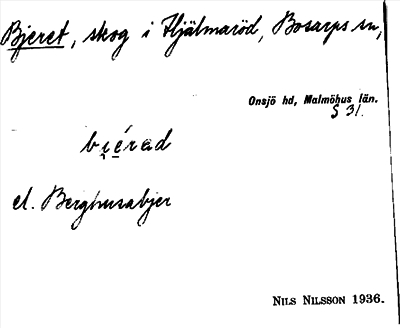 Bjeret, skog i Hjälmaröd, Bosarps sn,
Onsjö hd, Malmöhus län.
S 31.
bi̯érad
el. Berghusabjer
NILS NILSSON 1936.